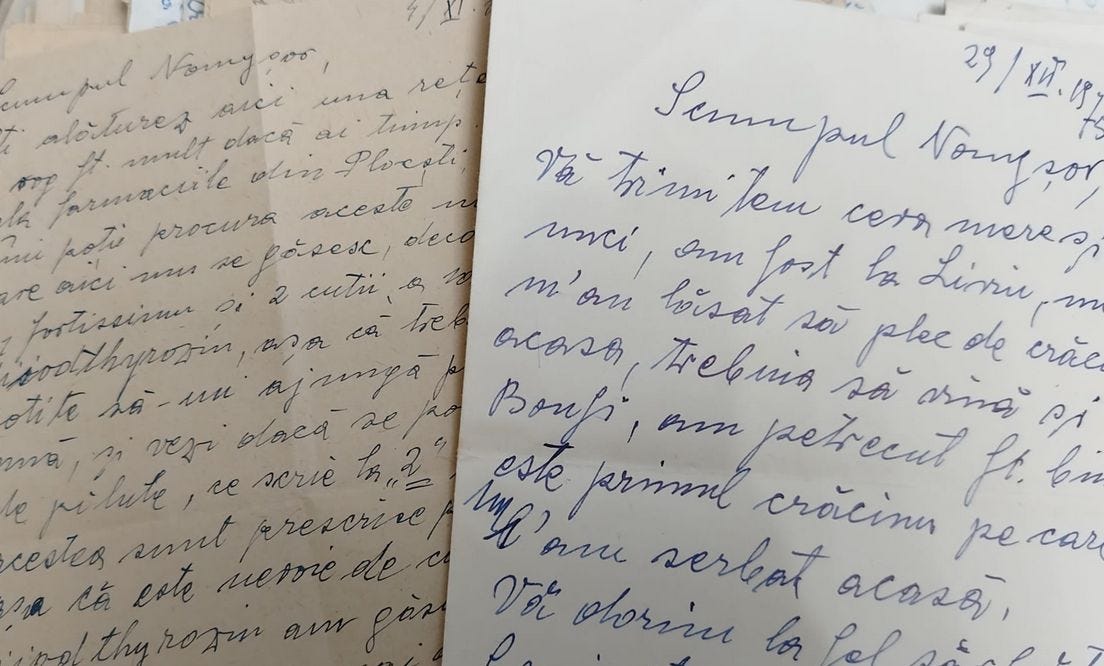 4/XI.
Scumpul Nomyșor,
ti alăturez aici una rețe
rog ft. mult dacă ai timp
la farmaciile din Ploești,
îmi poți procura aceste
care aici nu se găsesc, deca
fortissimu și 2 cutii a
iodthyrozin, așa că treb
să-mi ajungă p
și vezi dacă se po
de pilule, ce scrie la "2"
acestea sunt prescrise p
așa că este nevoie de c
iodthyrozin am găs
29/XII.197
75
Scumpul Nomyșor,
Vă trimitem ceva mere și
nuci, am fost la Liviu, nu
m'au lăsat să plec de crăciu
acasa, trebuia să vină și
Bouși, am petrecut ft. bin
este primul crăciun pe care
l'am serbat acasă,
Vă dorim la fel